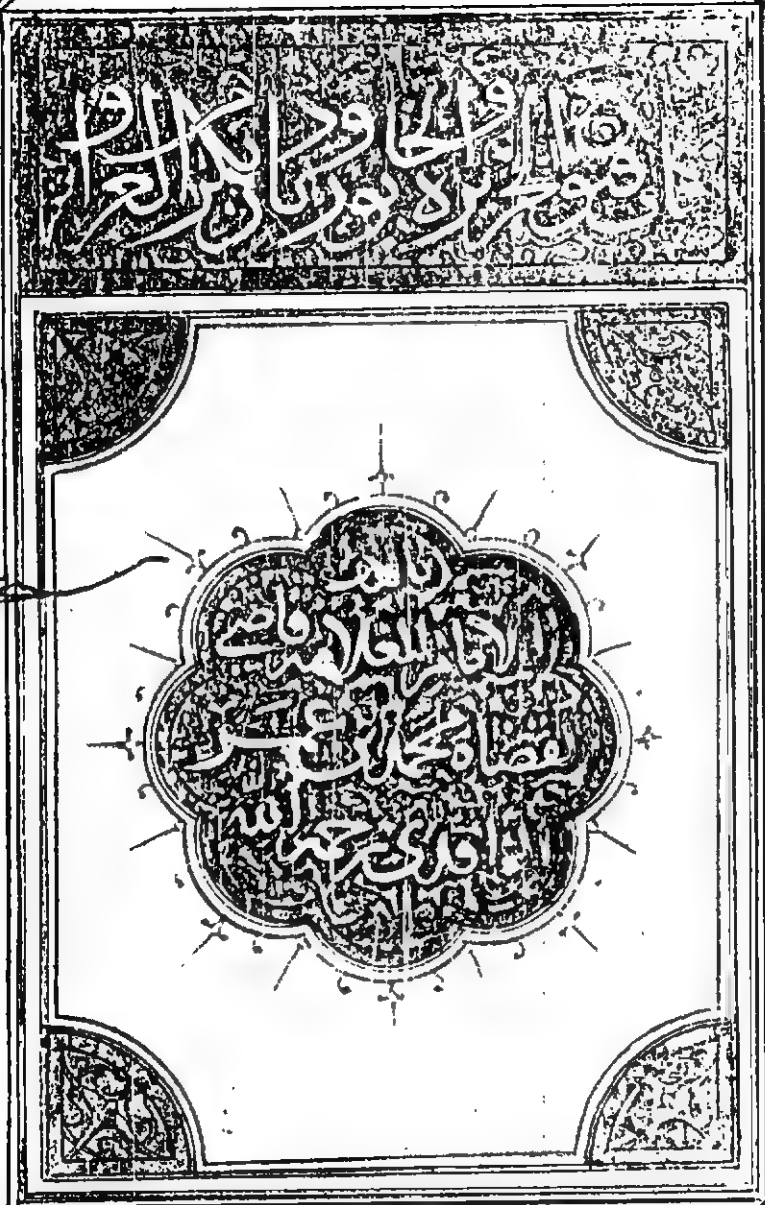 فتوح الجزيرة والخابور وديار بكر والعراق
تأليف
الامام العلامة قاضي
القضاة محمد بن عمر
الواقدي رحمه الله